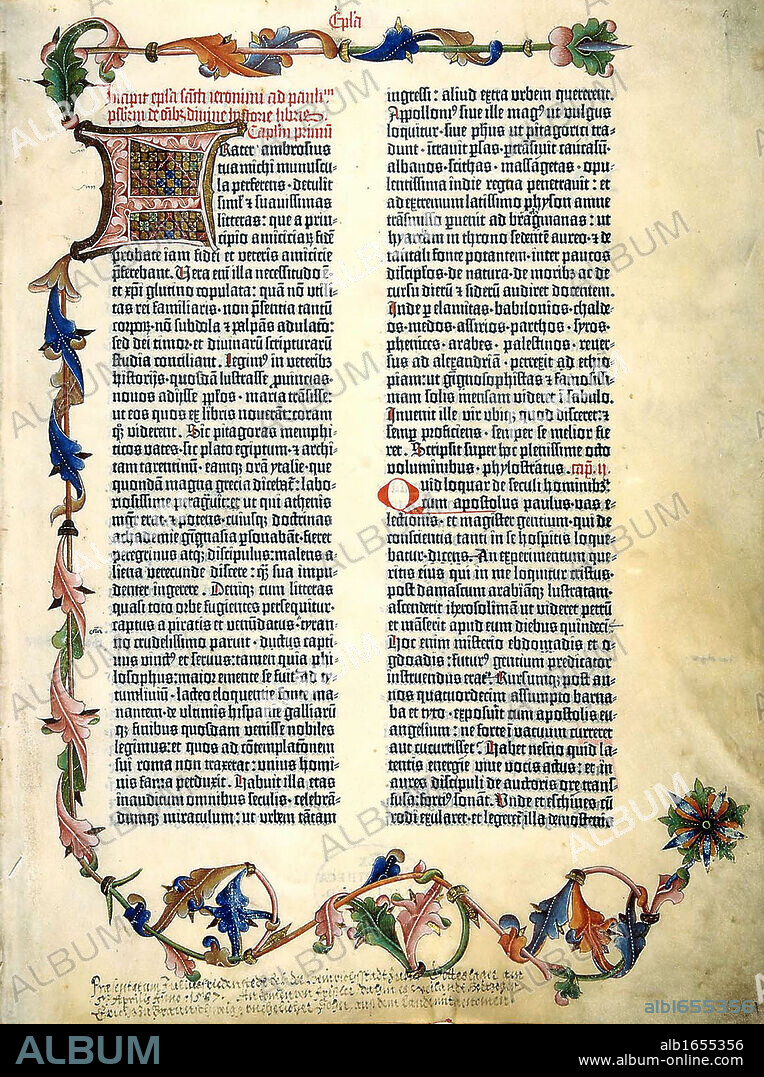 Epl'a
Incipit epl'a sancti ieronimi ad paulinū
Capitulū primū
Frater ambrosius
tua michi munuscu-
la perferens · detulit
siml' et suauissimas
litteras : que a prin-
cipio amiciciarꝫ fidē
probate iam fidei et veteris amicicie
p̄ferebant. Vera em̄ illa necessitudo ē ·
et xp̄i glutino copulata : quā nō vtili-
tas rei familiaris · non p̄sentia tantū
corporꝫ · nō subdola et palpās adulatō :
sed dei timor · et diuinarū scripturarū
studia conciliant. Legimꝰ in veteribꝫ
historijs · quosdā lustrasse prouincias
nouos adijsse ppl'os · maria trāsisse :
ut eos quos ex libris nouerāt : coram
qꝫ viderent. Sic pitagoras memphi-
ticos vates · sic plato egiptum · et archi-
tam tarentinū · eamqꝫ orā ytalie · que
quondā magna grecia dicebat̄ : labo-
riosissime peragrauit : et ut qui athenis
mgr̄ erat · et potens · cuiusqꝫ doctrinas
achademie gignasia p̄sonabāt · fieret
peregrinus atqꝫ discipulus : malens a-
liena verecunde discere : qꝫ sua impu-
denter ingerere. Deniqꝫ cum litteras
quasi toto orbe fugientes persequitur ·
captus a piratis et venūdatus · tyran-
no crudelissimo paruit · ductus capti-
uus vinctꝰ et seruus : tamen quia phi-
losophus : maior emente se fuit · ad ty-
tumliuiū · lacteo eloquentie fonte ma-
nantem · de vltimis hispanie galliarū
qꝫ finibus quosdam venisse nobiles
legimus : et quos ad cōtemplatōnem
sui roma non traxerat : vnius homi-
nis fama perduxit. Habuit illa etas
inauditum omnibus seculis · celebrā-
dumqꝫ miraculum : ut vrbem tātam
ingressi : aliud extra vrbem quererent.
Apollonꝰ siue ille magꝰ ut vulgus
loquitur · siue ph'us · ut pitagorici tra-
dunt · intrauit p̄sas · p̄trāsiuit caucasū ·
albanos · scithas · massagetas · opu-
lentissima indie regna penetrauit : et
ad extremum latissimo physon amne
trāsmisso p̄uenit ad bragmanas : ut
hyarcam in throno sedentē aureo · et de
tantali fonte potantem · inter paucos
discipl'os · de natura · de moribꝫ ac de
cursu dierū et siderū audiret docentem.
Inde p̄ elamitas · babilonios · chalde-
os · medos · assirios · parthos · syros ·
phenices · arabes · palestinos · reuer-
sus ad alexandriā · perrexit ad ethio-
piam : ut gignosophistas et famosissi-
mam solis mensam videret ī sabulo.
Inuenit ille vir vbiqꝫ quod disceret : et
semp̄ proficiens · semper se melior fie-
ret. Scripsit super hoc plenissime octo
voluminibus · phylostratus. cap. ij
Quid loquar de seculi hominibꝫ
cum apostolus paulus · vas e-
lectionis · et magister gentium · qui de
conscientia tanti in se hospitis loque-
batur · dicens. An experimentum que-
ritis eius qui in me loquitur cristus ·
post damascum arabiāqꝫ lustratam ·
ascenderit iherosolimā ut videret petrū
et māserit apud eum diebus quindecī.
Hoc enim misterio ebdomadis et o-
gdoadis : futurꝰ gentium predicator
instruendus erat. Rursumqꝫ post an-
nos quatuordecim assumpto barna-
ba et tyto · exposuit cum apostolis eu-
angelium : ne forte ī vacuum curreret
aut cucurrisset. Habet nescio quid la-
tentis energie viue vocis actus : et in
aures discipuli de auctoris ore trans-
fusa : fortiꝰ sonāt. Vnde et eschines cū
rodi exularet · et legeret̄ illa demostenis
ALBUM
alb1655356
ALBUM
alb1655356
www.album-online.com